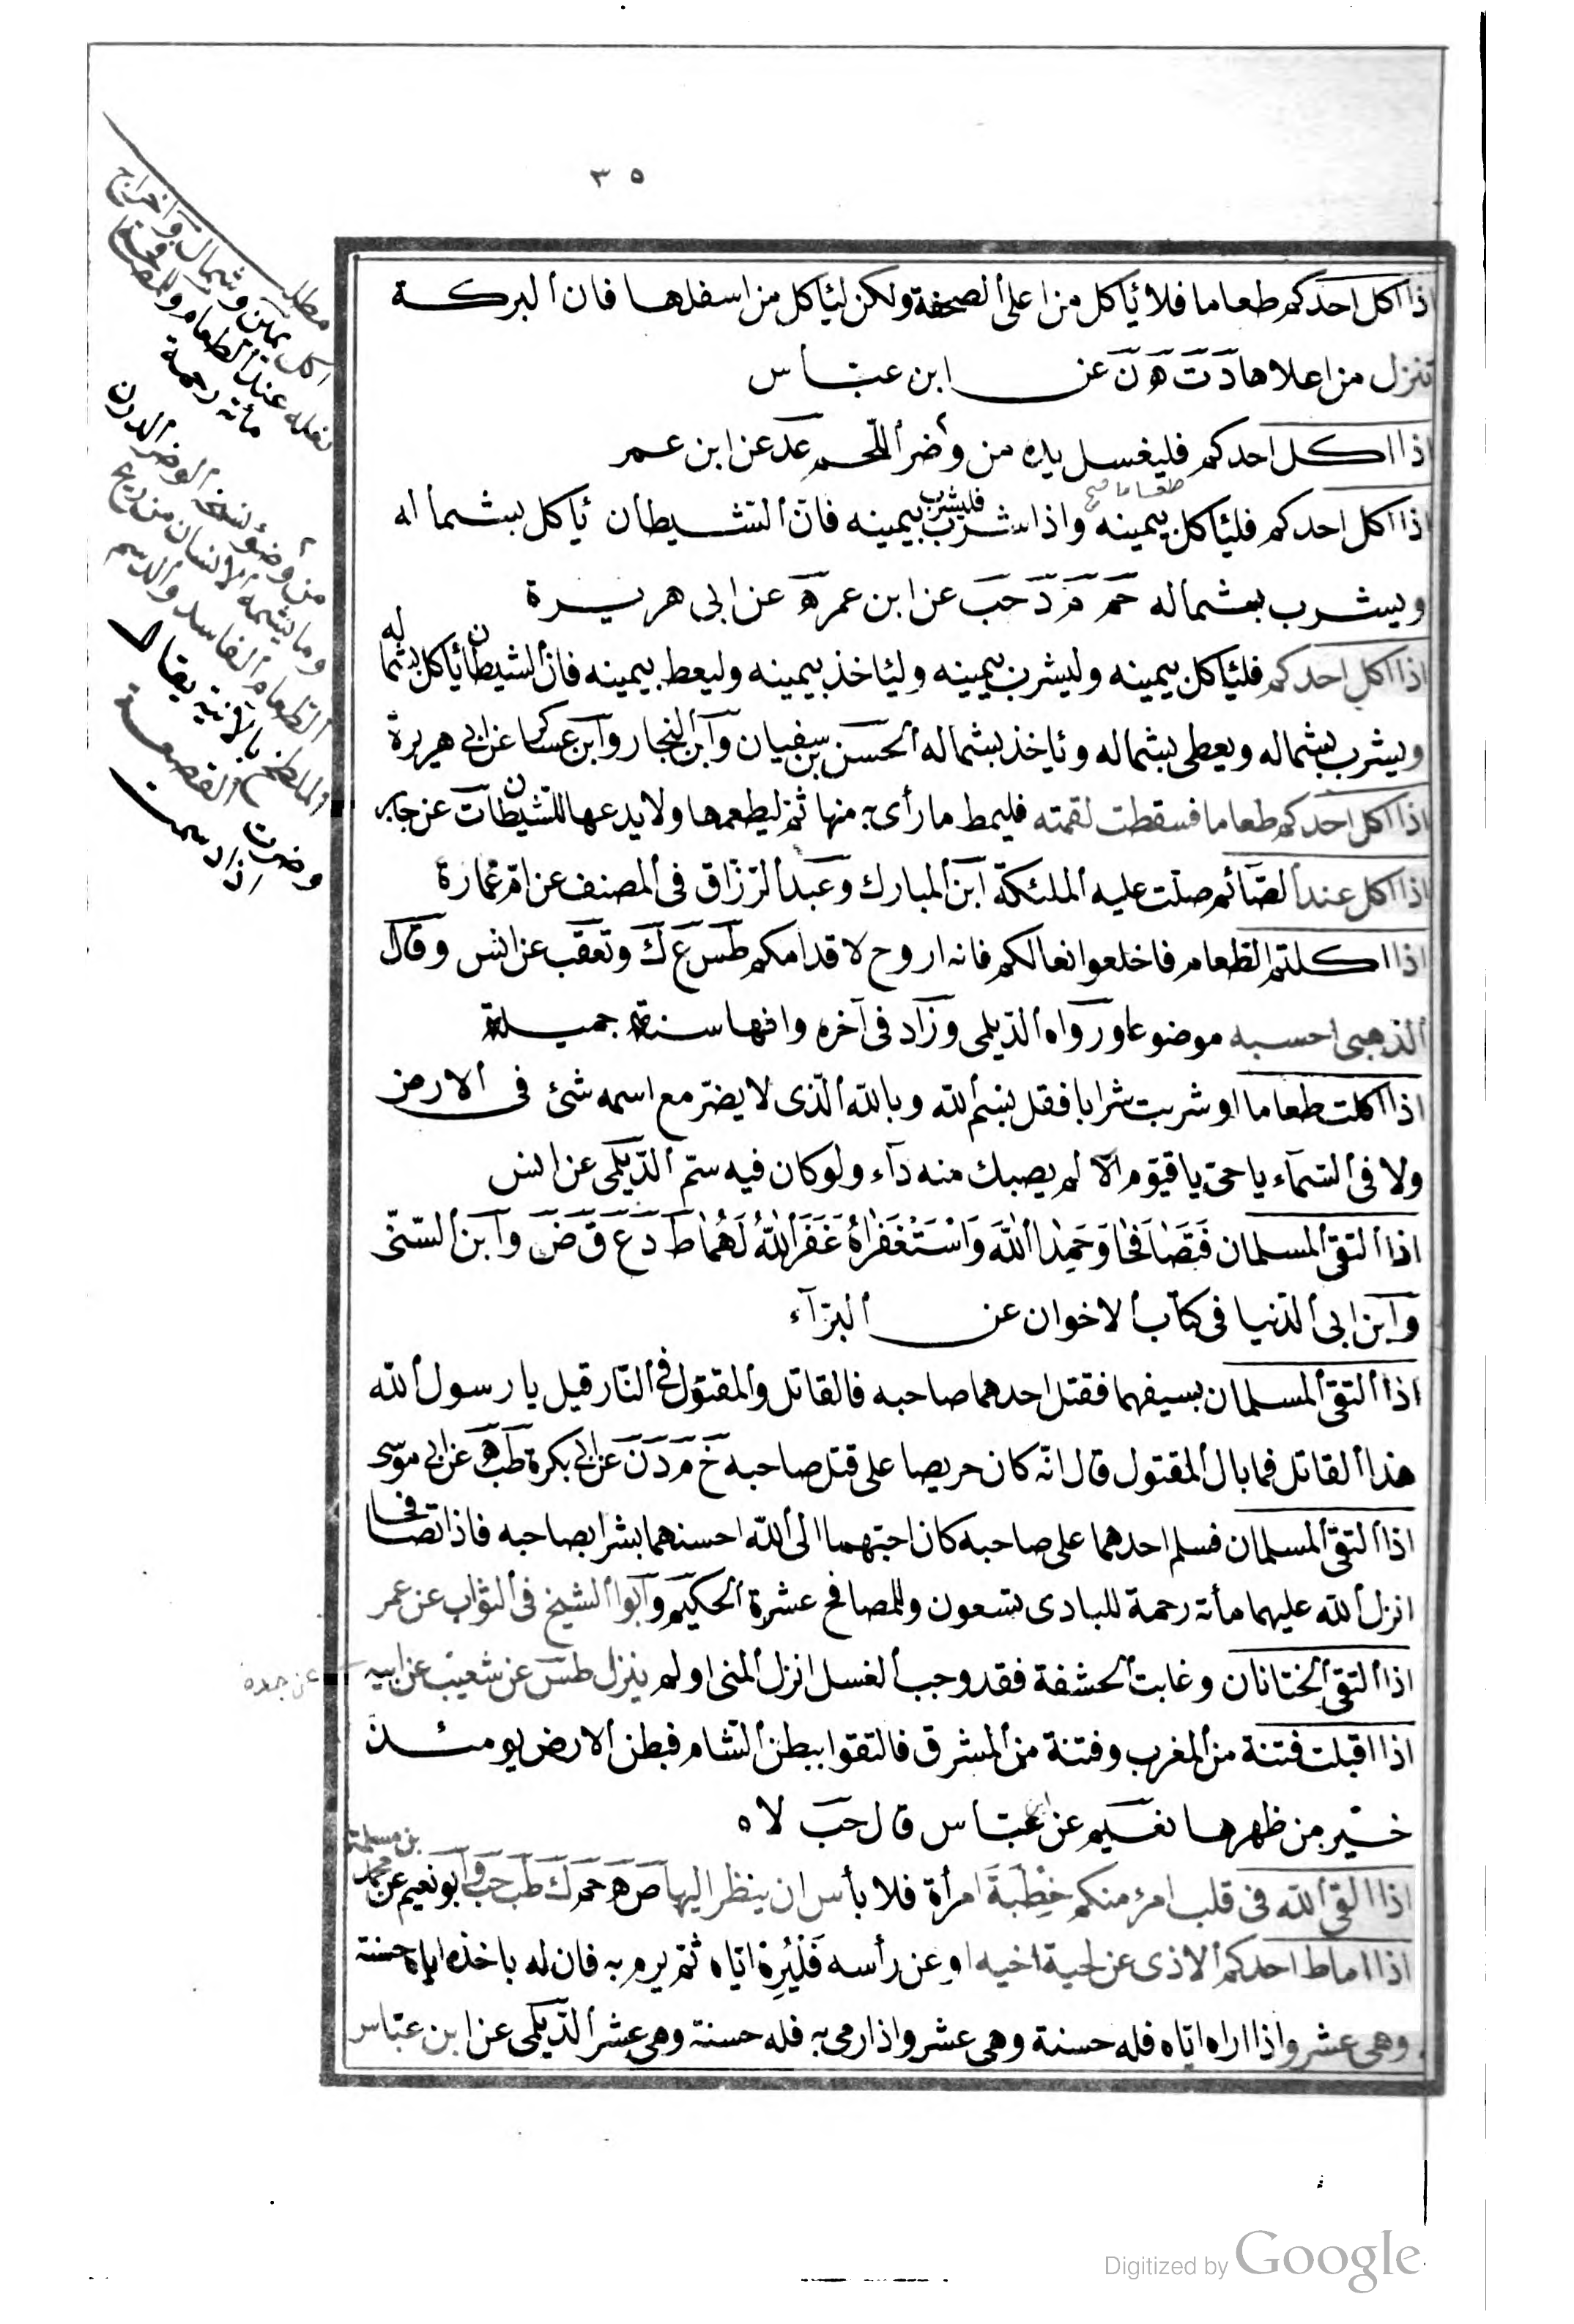 ٣٥
اذا اكل احدكم طعاما فلا يأكل من اعلى الصحفة ولكن ليأكل من اسفلها فان البركة
تنزل من اعلاها د ت ه ن عن ابن عباس
اذا اكل احدكم فليغسل يده من وضر اللحم عد عن ابن عمر
اذا اكل احدكم طعاما فليأكل بيمينه واذا شرب فليشرب بيمينه فان الشيطان يأكل بشماله
ويشرب بشماله حم م د حب عن ابن عمر ه عن ابى هريرة
اذا اكل احدكم فليأكل بيمينه وليشرب بيمينه وليأخذ بيمينه وليعط بيمينه فان الشيطان يأكل بشماله
ويشرب بشماله ويعطى بشماله ويأخذ بشماله الحسن بن سفيان وابن النجار وابن عساكر عن ابى هريرة
اذا اكل احدكم طعاما فسقطت لقمته فليمط ما رأى به منها ثم ليطعمها ولا يدعها للشيطان ت عن جابر
اذا اكل عند الصائم صلت عليه الملئكة ابن المبارك وعبد الرزاق فى المصنف عن ام عمارة
اذا اكلتم الطعام فاخلعوا نعالكم فانه اروح لاقدامكم طس ع ك وتعقب عن انس وقال
الذهبى احسبه موضوعا ورواه الديلمى وزاد فى آخره وانها سنة جميلة
اذا اكلت طعاما او شربت شرابا فقل بسم الله وبالله الذى لا يضر مع اسمه شئ فى الارض
ولا فى السماء يا حى يا قيوم الا لم يصبك منه داء ولو كان فيه سم الديلمى عن انس
اذا التقى المسلمان فَتَصَافَحَا وَحَمِدَا اللهَ وَاسْتَغْفَرَاهُ غَفَرَ اللهُ لَهُمَا ط د ع ق ض وابن السنى
وابن ابى الدنيا فى كتاب الاخوان عن البراء
اذا التقى المسلمان بسيفهما فقتل احدهما صاحبه فالقاتل والمقتول فى النار قيل يا رسول الله
هذا القاتل فما بال المقتول قال انه كان حريصا على قتل صاحبه خ م د ن عن ابى بكرة طب ه عن ابى موسى
اذا التقى المسلمان فسلم احدهما على صاحبه كان احبهما الى الله احسنهما بشرا بصاحبه فاذا تصافحا
انزل الله عليهما مأته رحمة للبادى تسعون وللمصافح عشرة الحكيم وابو الشيخ فى الثواب عن عمر
اذا التقى الختانان وغابت الحشفة فقد وجب الغسل انزل المنى او لم ينزل طس عن شعيب عن ابيه
عن جده
اذا اقبلت فتنة من المغرب وفتنة من المشرق فالتقوا ببطن الشام فبطن الارض يومئذ
خير من ظهرها نعيم عن ابن عباس قال حب لاه
اذا القى الله فى قلب امرء منكم خِطْبَةَ امرأة فلا بأس ان ينظر اليها ص ه حم ك طب حب ق وابو نعيم عن محمد بن مسلمة
اذا اماط احدكم الاذى عن لحية اخيه او عن رأسه فَلْيُرِهِ اياه ثم يرم به فان له باخذه اياه حسنة
وهى عشر واذا اراه اياه فله حسنة وهى عشر واذا رمى به فله حسنة وهى عشر الديلمى عن ابن عباس
اكل يمين وشمال واخراج
نعله عند الطعام والمصافحة
مأته رحمة
وما يشمه الانسان من ريح
الطعام الفاسد والدسم
Digitized by Google